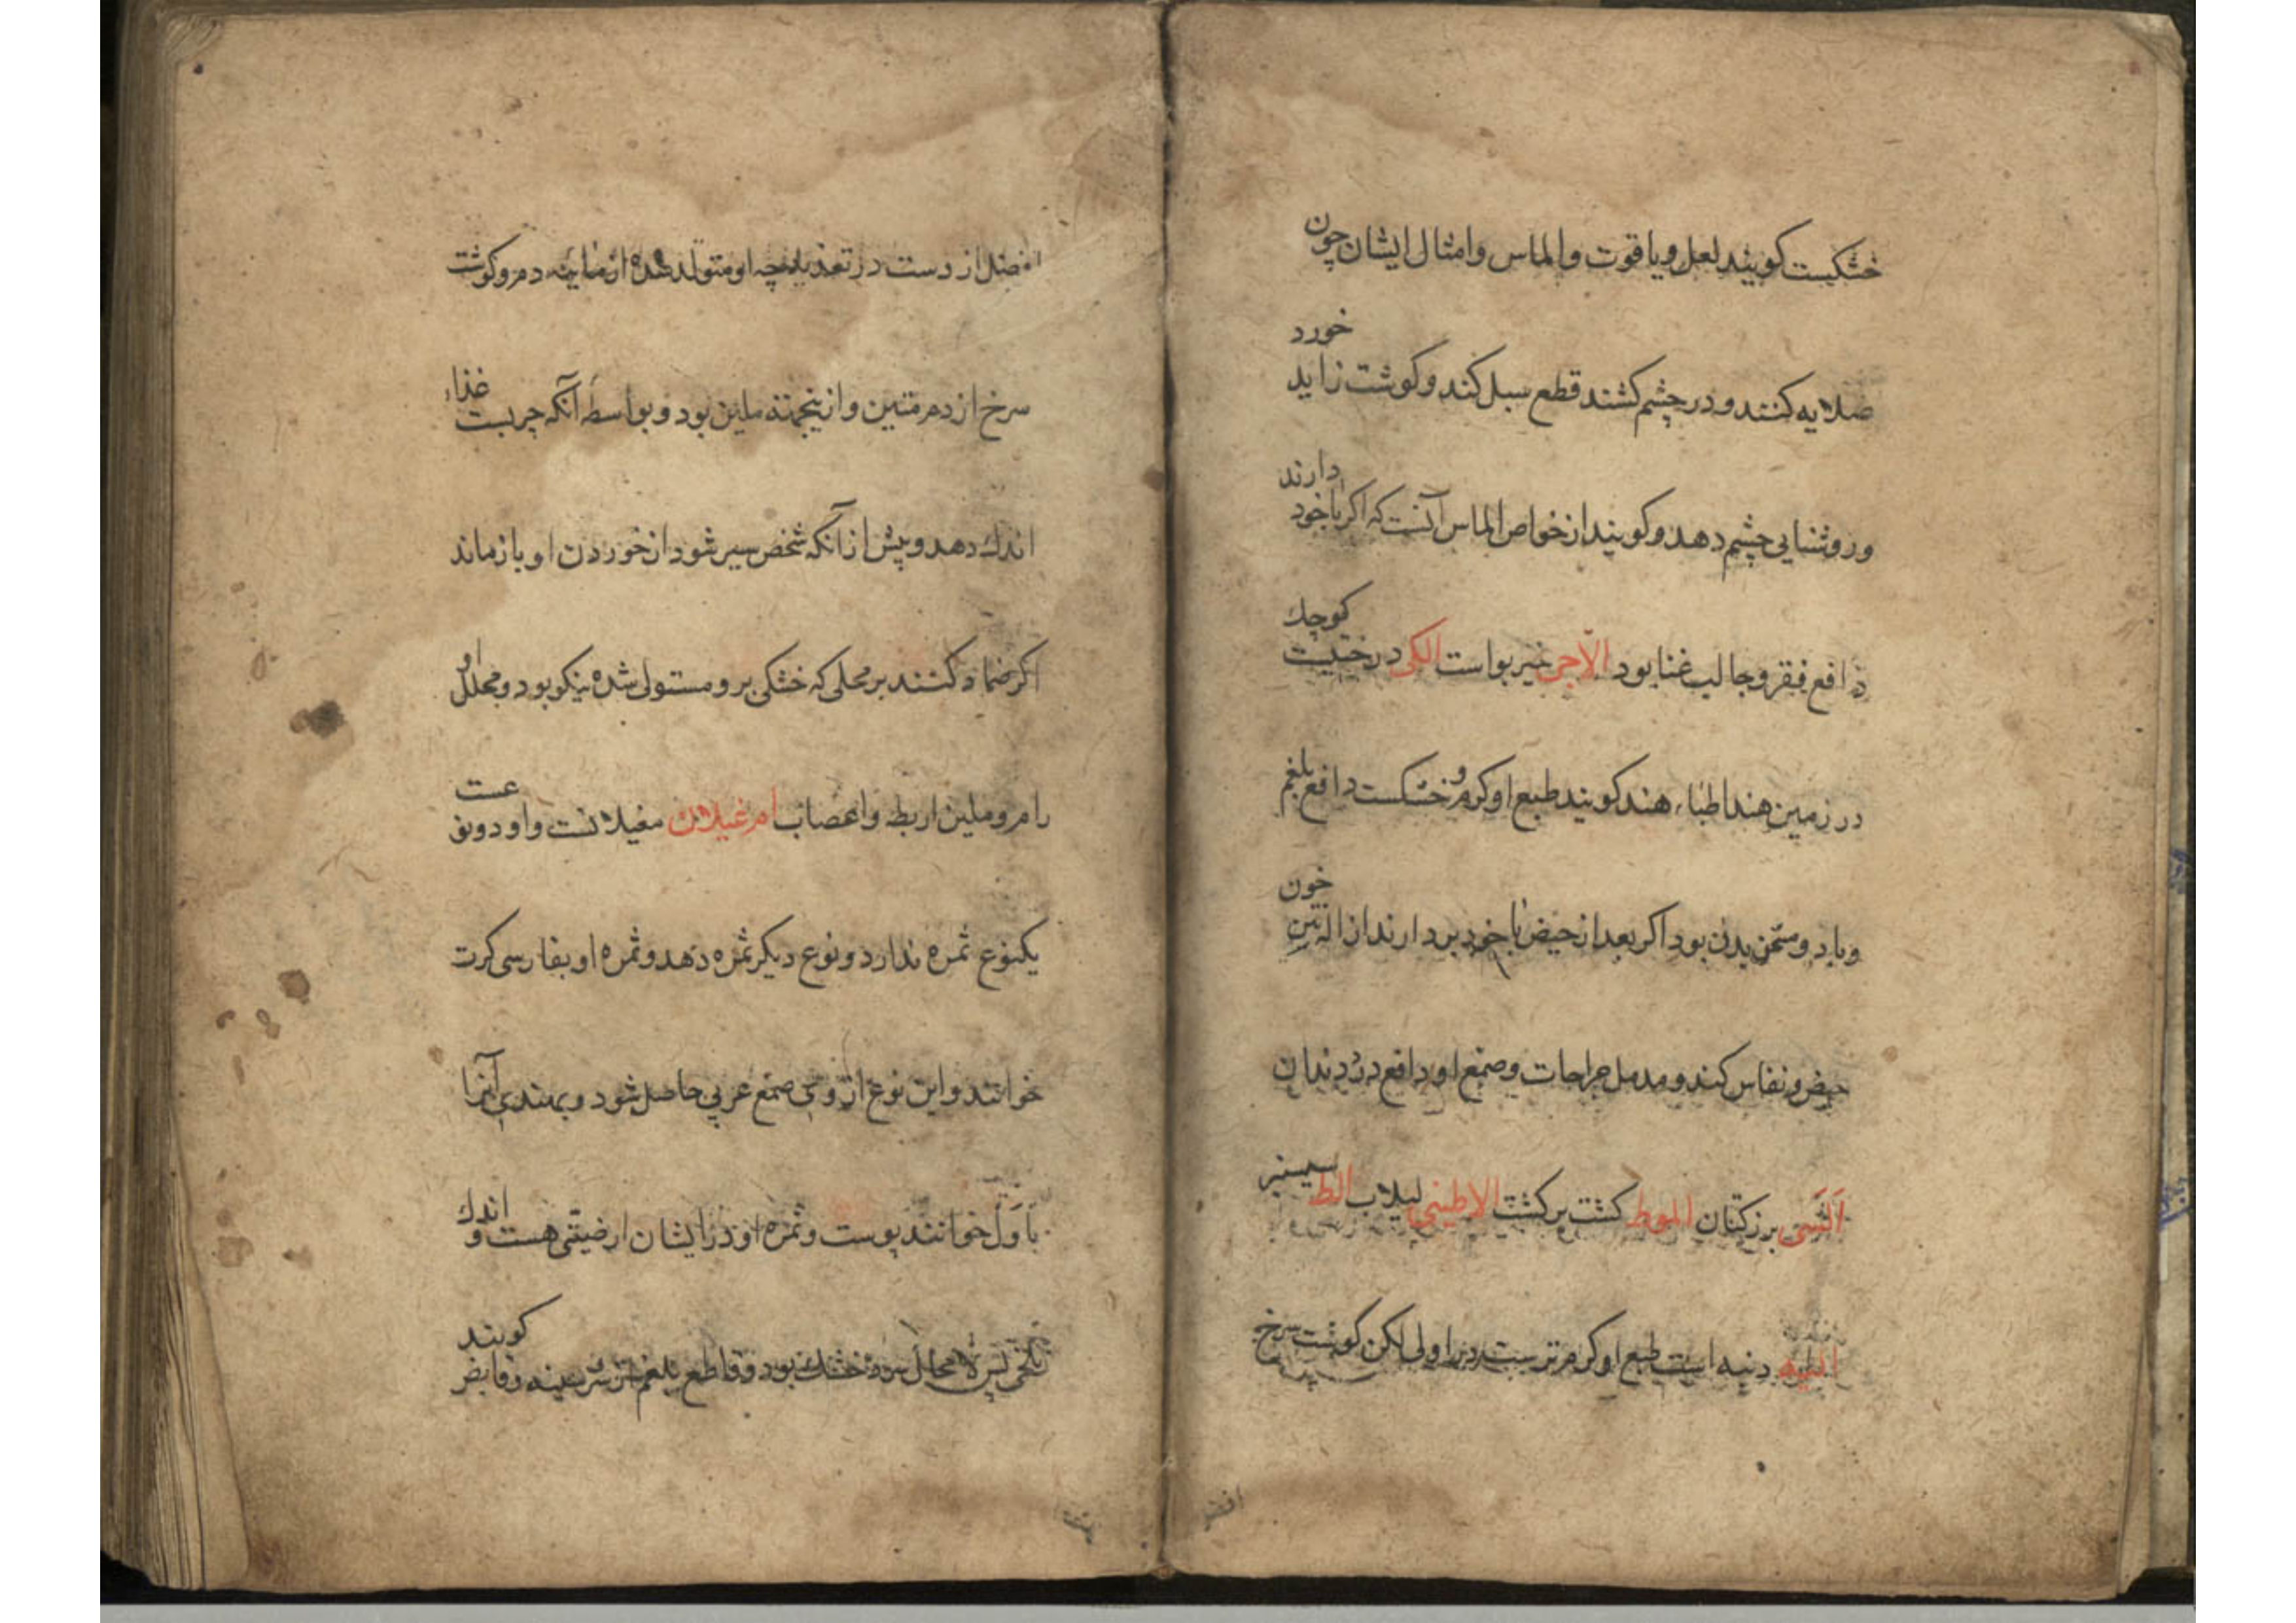 خشکیست کویند لعل و یاقوت و الماس و امثال ایشان چون
صلایه کنند و در چشم کشند قطع سبل کند و کوشت زاید خورد
و روشنایی چشم دهد و کویند از خواص الماس آنست که اکر با خود دارند
دافع فقر و جالب غنا بود الآجی خیربواست الکی درختیست کوچک
در زمین هند اطباء هند کویند طبع او کرم و خشکست دافع بلغم
و باد و مسخن بدن بود اکر بعد از حیض با خود بردارند ازاله خون
حیض و نفاس کند و مدمل جراحات و صمغ او دافع درد دندان
السی بزرکتان الموط کشت برکشت الاطینی لبلاب الط سیسنبر
الیه دنبه است طبع او کرم ترست در اولی لکن کوشت سرخ
افضل
از وست در تغذیه چه او متولد شده از مائیه دم و کوشت
سرخ از دم متین و ازینجهته ملین بود و بواسطه آنکه چربست غذاء
اندک دهد و پیش از آنکه شخص سیر شود از خوردن او بازماند
اکر ضماد کنند بر محلی که خشکی برو مستولی شده نیکو بود و محلل او
رام و ملین اربطه و اعصاب ام غیلان مغیلانست و او دو نوعست
یکنوع ثمره ندارد و نوع دیکر ثمره دهد و ثمره او بفارسی کرت
خوانند و این نوع از وی صمغ عربی حاصل شود و بهندی آنرا
باول خوانند پوست و ثمره او در ایشان ارضیتی هست و اندک
تلخی پس لا محال سرد خشک بود و قاطع بلغم و قابض کویند